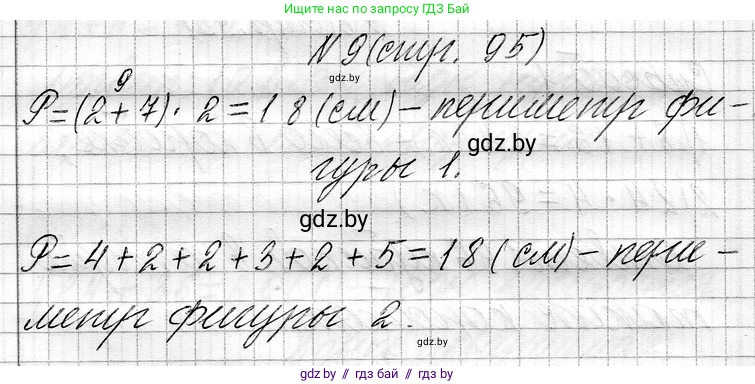 Ищите нас по запросу ГДЗ Бай
N 9 (стр. 95)
gdz.by
9
P = (2 + 7) · 2 = 18 (см) – периметр фи-
gdz.by
гуры 1.
gdz.by
P = 4 + 2 + 2 + 3 + 2 + 5 = 18 (см) – пери-
метр фигуры 2.
gdz.by
gdz.by // гдз бай // gdz.by